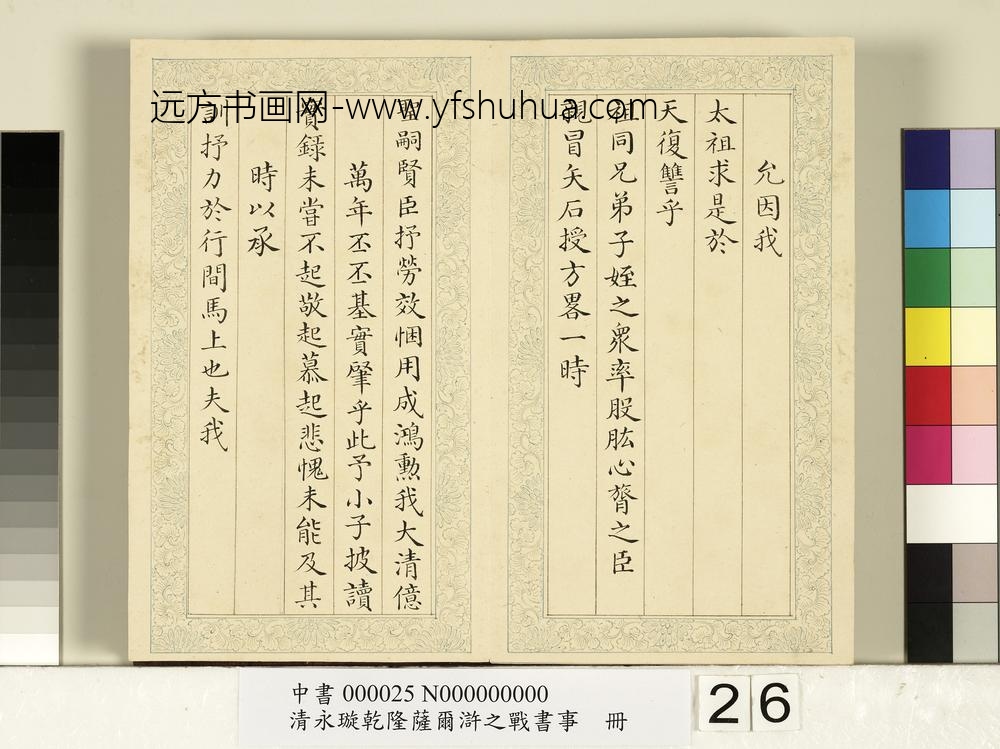 远方书画网-www.yfshuhua.com
允因我
太祖求是於
天復讐乎
祖同兄弟子姪之衆率股肱心膂之臣
親冒矢石授方畧一時
聖嗣賢臣抒勞效悃用成鴻勲我大清億
萬年丕丕基實肇乎此予小子披讀
實録未嘗不起敬起慕起悲愧未能及其
時以承
訓抒力於行間馬上也夫我
中書 000025 N000000000
清永璇乾隆薩爾滸之戰書事 冊
26